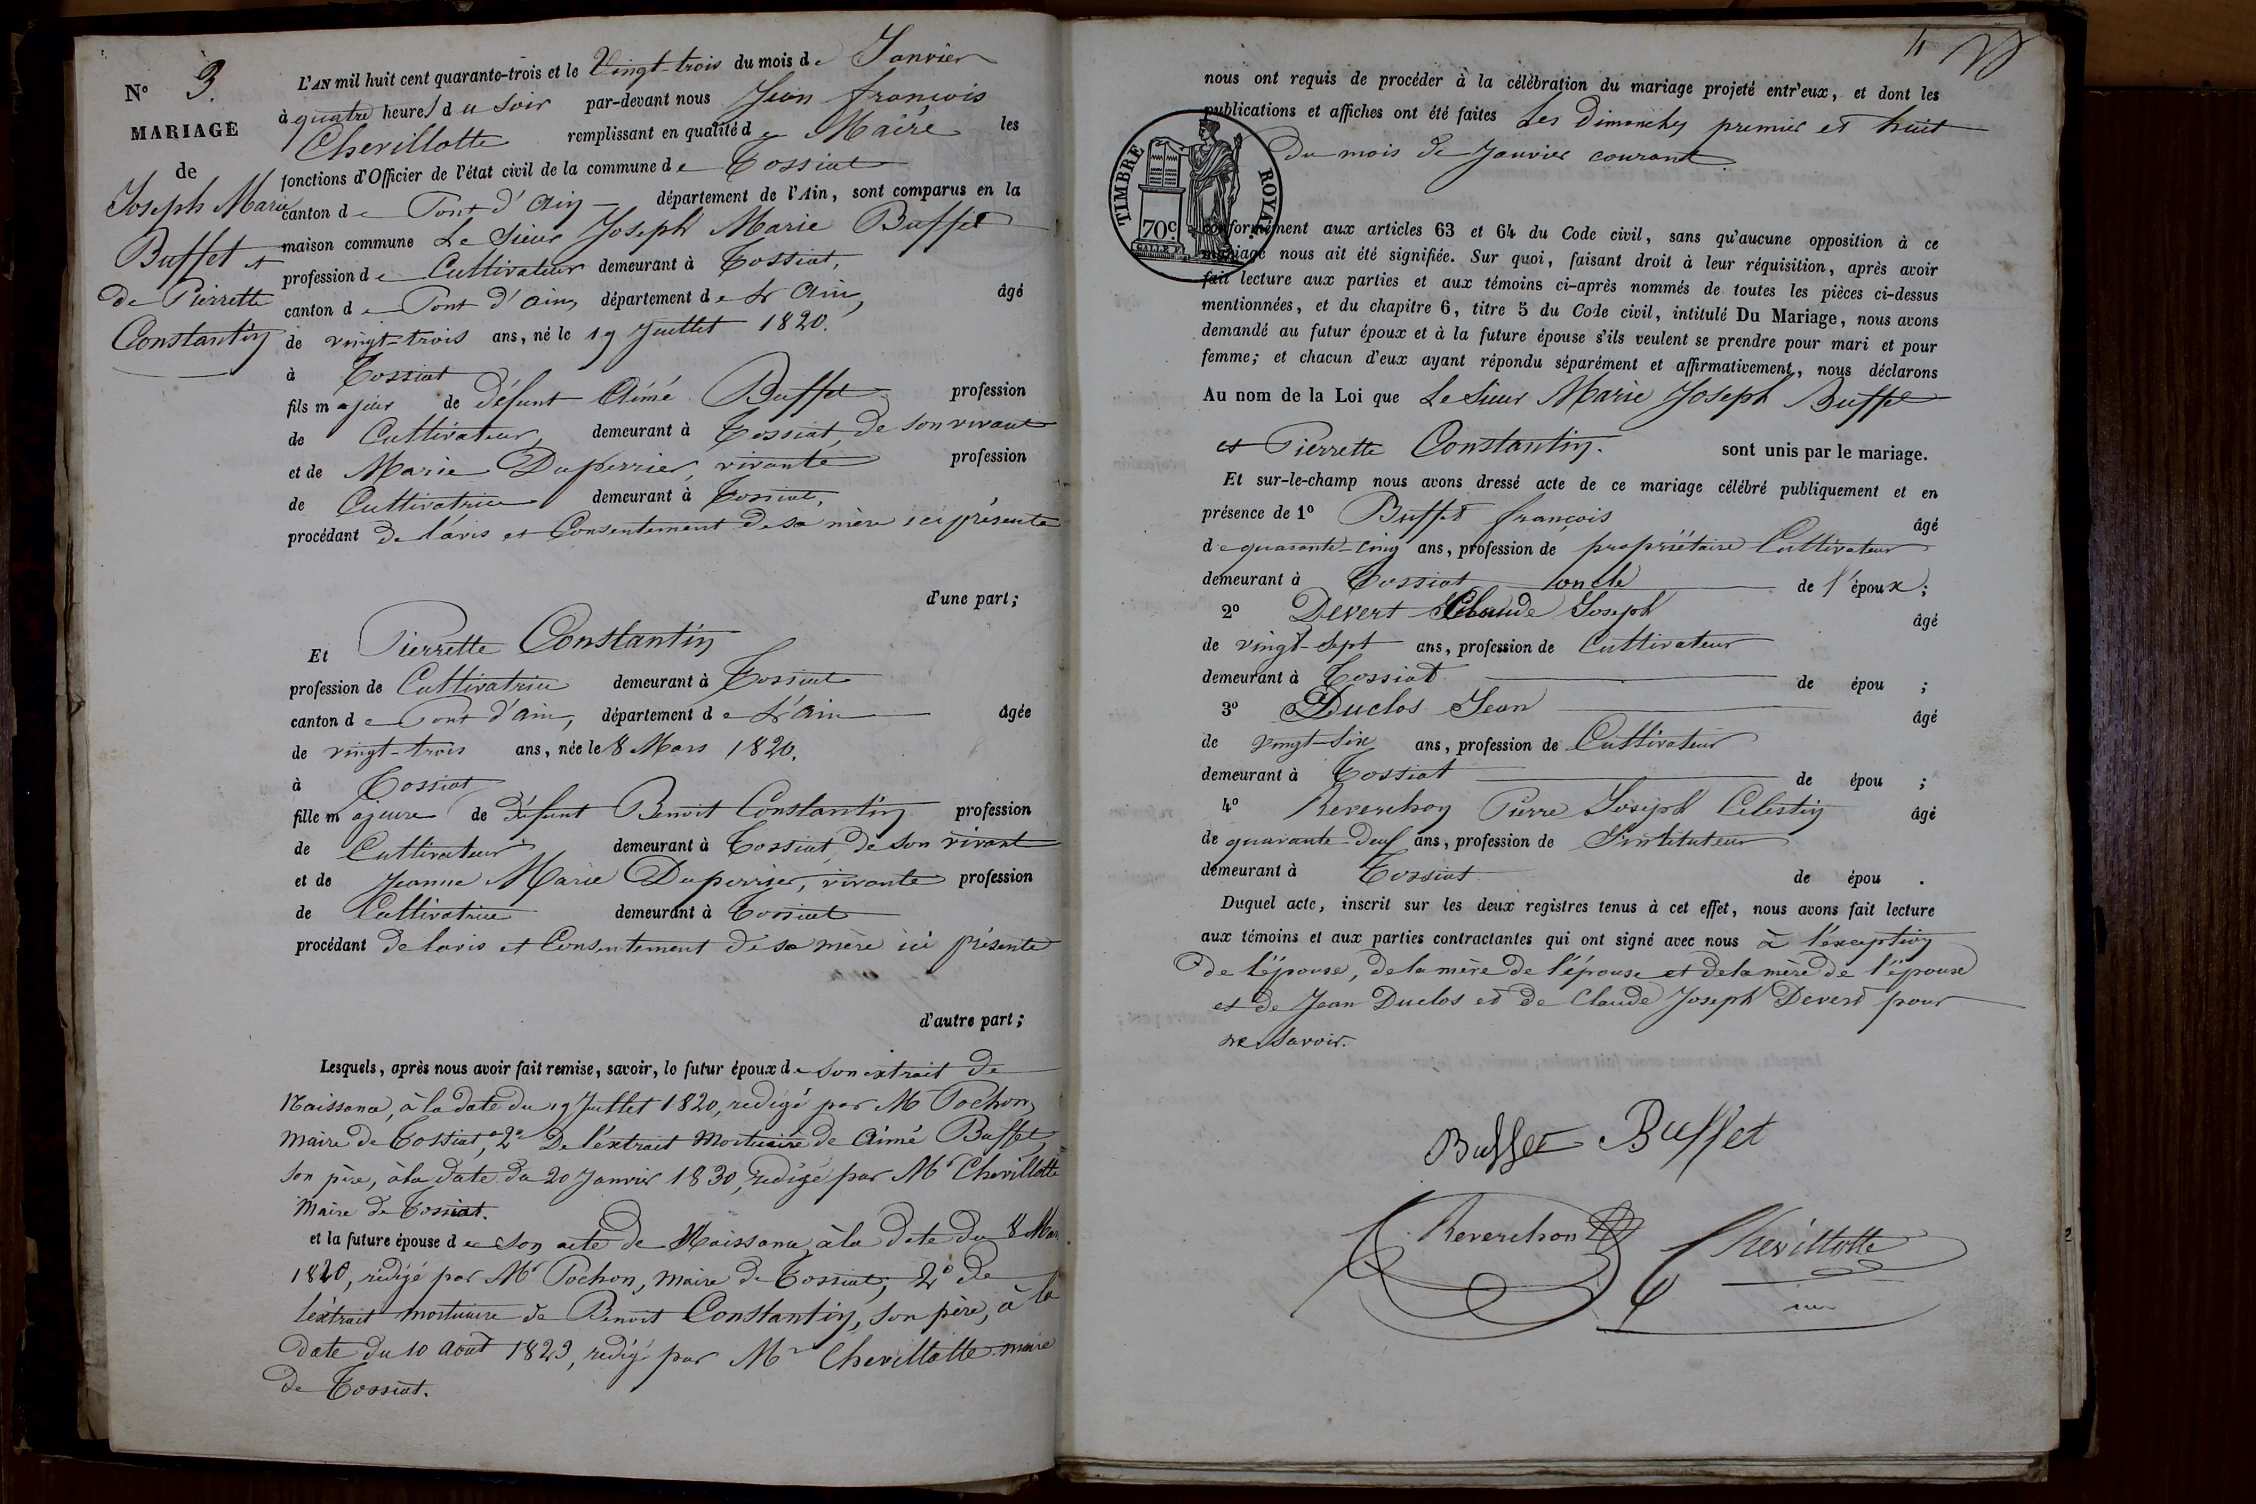 N° 3.
MARIAGE
de
Joseph Marie
Buffet et
de Pierrette
Constantin
L'AN mil huit cent quarante-trois et le Vingt-trois du mois de Janvier
à quatre heures du Soir par-devant nous Jean françois
Chevillotte remplissant en qualité de Maire les
fonctions d'Officier de l'état civil de la commune de Tossiat
canton de Pont d'Ain département de l'Ain, sont comparus en la
maison commune Le Sieur Joseph Marie Buffet
profession de Cultivateur demeurant à Tossiat,
canton de Pont d'ain, département de L'Ain, âgé
de vingt-trois ans, né le 19 Juillet 1820.
à Tossiat
fils majeur de défunt Aimé Buffet profession
de Cultivateur, demeurant à Tossiat, de son vivant
et de Marie Duperrier, vivante profession
de Cultivatrice demeurant à Tossiat,
procédant de l'avis et Consentement de sa mère ici présente
d'une part;
Et Pierrette Constantin
profession de Cultivatrice demeurant à Tossiat
canton de Pont d'ain, département de L'ain âgée
de vingt-trois ans, née le 8 Mars 1820.
à Tossiat
fille majeure de défunt Benoit Constantin profession
de Cultivateur demeurant à Tossiat, de son vivant
et de Jeanne Marie Duperrier, vivante profession
de Cultivatrice demeurant à Tossiat
procédant de lavis et Consentement de sa mère ici présente
d'autre part;
Lesquels, après nous avoir fait remise, savoir, le futur époux de son extrait de
Naissance, à la date du 19 Juillet 1820, redigé par Mr Pochon,
Maire de Tossiat, 2° De l'extrait Mortuaire de Aimé Buffet,
son père, à la date du 20 Janvier 1830, redigé par Mr Chevillotte
Maire de Tossiat.
et la future épouse de Son acte de Naissance, à la date du 8 Mars
1820, rédigé par Mr Pochon, Maire de Tossiat, 2° de
l'extrait mortuaire de Benoit Constantin, son père, à la
date du 10 Août 1823, redigé par Mr Chevillotte maire
de Tossiat.
4
nous ont requis de procéder à la célébration du mariage projeté entr'eux, et dont les
publications et affiches ont été faites Les Dimanches premier et huit
du mois de Janvier courant
TIMBRE ROYAL
70c
conformément aux articles 63 et 64 du Code civil, sans qu'aucune opposition à ce
mariage nous ait été signifiée. Sur quoi, faisant droit à leur réquisition, après avoir
fait lecture aux parties et aux témoins ci-après nommés de toutes les pièces ci-dessus
mentionnées, et du chapitre 6, titre 5 du Code civil, intitulé Du Mariage, nous avons
demandé au futur époux et à la future épouse s'ils veulent se prendre pour mari et pour
femme; et chacun d'eux ayant répondu séparément et affirmativement, nous déclarons
Au nom de la Loi que Le Sieur Marie Joseph Buffet
et Pierrette Constantin. sont unis par le mariage.
Et sur-le-champ nous avons dressé acte de ce mariage célébré publiquement et en
présence de 1° Buffet françois âgé
de quarante-cinq ans, profession de propriétaire Cultivateur
demeurant à Tossiat oncle de l'époux;
2° Devert Claude Joseph âgé
de vingt-sept ans, profession de Cultivateur
demeurant à Tossiat de épou ;
3° Duclos Jean âgé
de vingt-six ans, profession de Cultivateur
demeurant à Tossiat de épou ;
4° Reverchon Pierre Joseph Celestin âgé
de quarante-deux ans, profession de Instituteur
demeurant à Tossiat de épou .
Duquel acte, inscrit sur les deux registres tenus à cet effet, nous avons fait lecture
aux témoins et aux parties contractantes qui ont signé avec nous à l'exception
de l'épouse, de la mère de l'épouse et de la mère de l'épouse
et de Jean Duclos et de Claude Joseph Devert pour
ne savoir.
Buffet Buffet
Reverchon Chevillotte